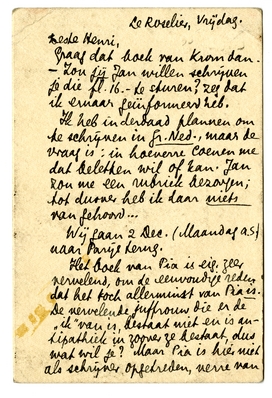 Le Roselier, Vrijdag.
Beste Henri,
Graag dat boek van Krom dan.
- Zou jij Jan willen schrijven
je die fl. 16.- te sturen? zeg dat
ik ernaar geïnformeerd heb.
Ik heb inderdaad plannen om
te schrijven in Gr. Ned., maar de
vraag is: in hoeverre Coenen me
dat beletten wil of kan. Jan
zou me een rubriek bezorgen;
tot dusver heb ik daar niets
van gehoord...
Wij gaan 2 Dec. (Maandag a.s.)
naar Parijs terug.
Het boek van Pia is eig. zeer
vervelend, om de eenvoudige reden
dat het toch allerminst van Pia is.
De vervelende juffrouw die er de
"ik" van is, bestaat niet en is an-
tipathiek in zooverre ze bestaat, dus
wat wil je? Maar Pia is hier niet
als schrijver opgetreden, verre van